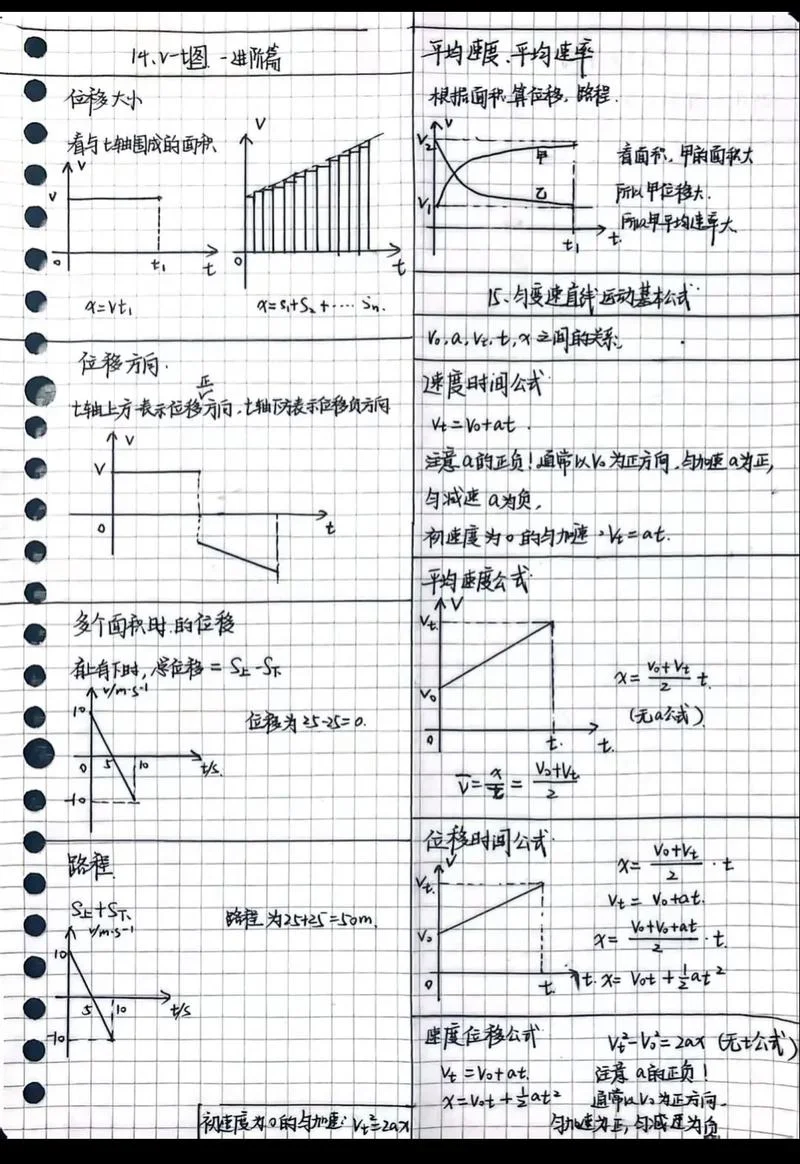 14、v-t图 -进阶篇
位移大小
看与t轴围成的面积
v
v
0
t₁
t
x=vt₁
v
0
t
x=s₁+s₂+……sn.
位移方向.
正
t轴上方表示位移方向,t轴下方表示位移负方向
v
v
0
t
多个面积时的位移
有上有下时,总位移=S上-S下
v/m·s⁻¹
10
0
5
10
t/s
-10
位移为25-25=0.
路程
S上+S下
v/m·s⁻¹
10
5
10
t/s
-10
路程为25+25=50m.
初速度为0的匀加速:vt²=2ax
平均速度、平均速率
根据面积算位移、路程.
v
v₂
v₁
甲
乙
t₁
t
看面积,甲的面积大
所以甲位移大.
所以甲平均速率大
15、匀变速直线运动基本公式
v₀,a,vt,t,x之间的关系.
速度时间公式
vt=v₀+at.
注意a的正负!通常以v₀为正方向,匀加速a为正,
匀减速a为负,
初速度为0的匀加速:vt=at.
平均速度公式
v
vt
v₀
0
t
t
x=(v₀+vt)/2 t.
(无a公式)
v̄=x/t=(v₀+vt)/2
位移时间公式
v
vt
v₀
0
t
t
x=(v₀+vt)/2·t
vt=v₀+at.
x=(v₀+v₀+at)/2·t.
x=v₀t+½at²
速度位移公式
vt²-v₀²=2ax (无t公式)
vt=v₀+at.
注意a的正负!
x=v₀t+½at²
通常以v₀为正方向.
匀加速为正,匀减速为负